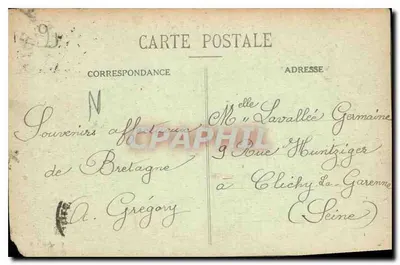 CARTE POSTALE
CORRESPONDANCE
ADRESSE
N
Souvenirs affectueux
de Bretagne
A. Grégory
Melle Lavallée Germaine
9 Rue Huntziger
à Clichy-la-Garenne
(Seine)
CPAPHIL